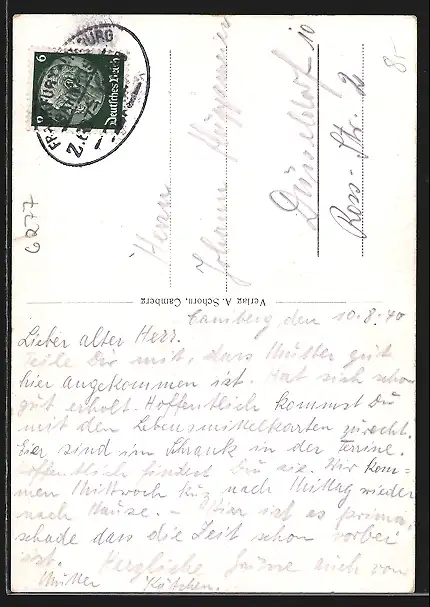 FRANKFURT
6
Deutsches Reich
6277
8.-
Herrn
Johann
Düsseldorf 10
Ross-Str. 2
Verlag A. Schorn, Camberg
Camberg, den 10.8.40
Lieber alter Herr.
Teile Dir mit, dass Mutter gut
hier angekommen ist. Hat sich schon
gut erholt. Hoffentlich kommst Du
mit den Lebensmittelkarten zurecht.
Eier sind im Schrank in der Terrine.
Hoffentlich findest Du sie. Wir kom-
men Mittwoch nach Mittag wieder
nach Hause. - Hier ist es prima,
schade dass die Zeit schon vorbei
ist. Herzliche Grüsse auch von
Mutter Käthchen.